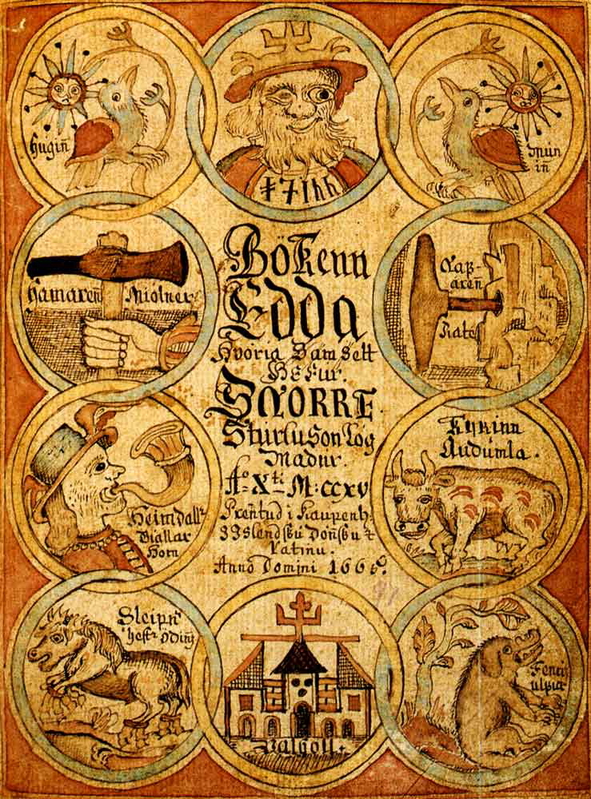 Hugin
Mun
in
Hamaren Miolner
Rate
Bökenn
Edda
Hvoria Samsett
Hefur
SNORRE
Sturluson Log
Madur.
Aº Xti M.CCXV
Prentud i Kaupenh
Islendsku Donsku &
Latinu.
Anno Domini 1665.
Heimdallr
Giallar
Horn
Kyrinn
Audumla.
Sleipn
hestr Odins
Valhöll